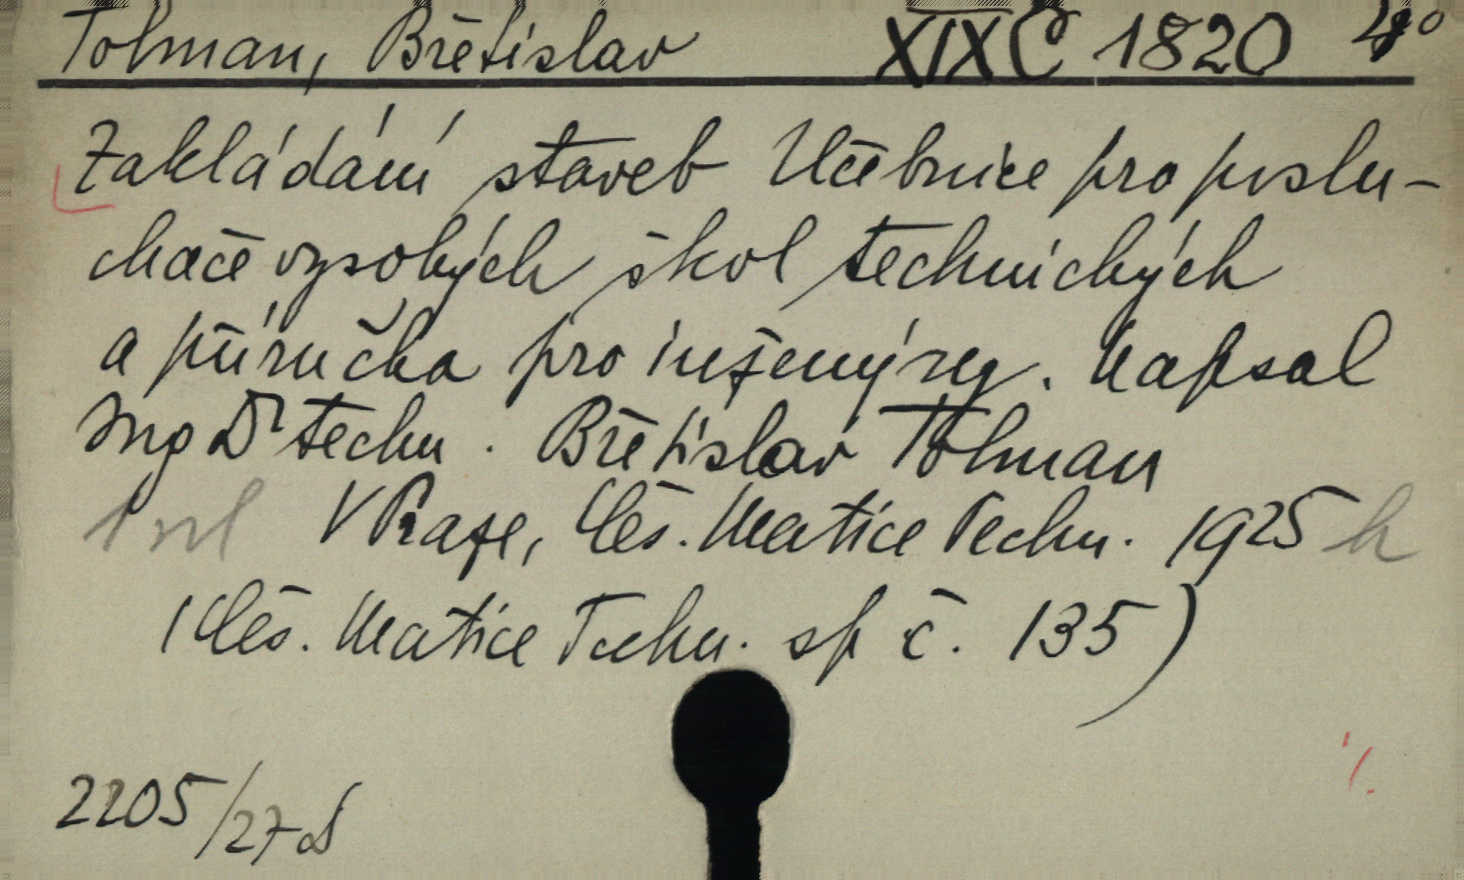 Tolman, Břetislav XIX Č 1820 4º
Zakládání staveb Učebnice pro poslu-
chače vysokých škol technických
a příručka pro inženýry. Napsal
Ing Dr techn. Břetislav Tolman
1 vyd V Praze, Čes. Matice Techn. 1925 h
(Čes. Matice Techn. sp č. 135)
2205/27